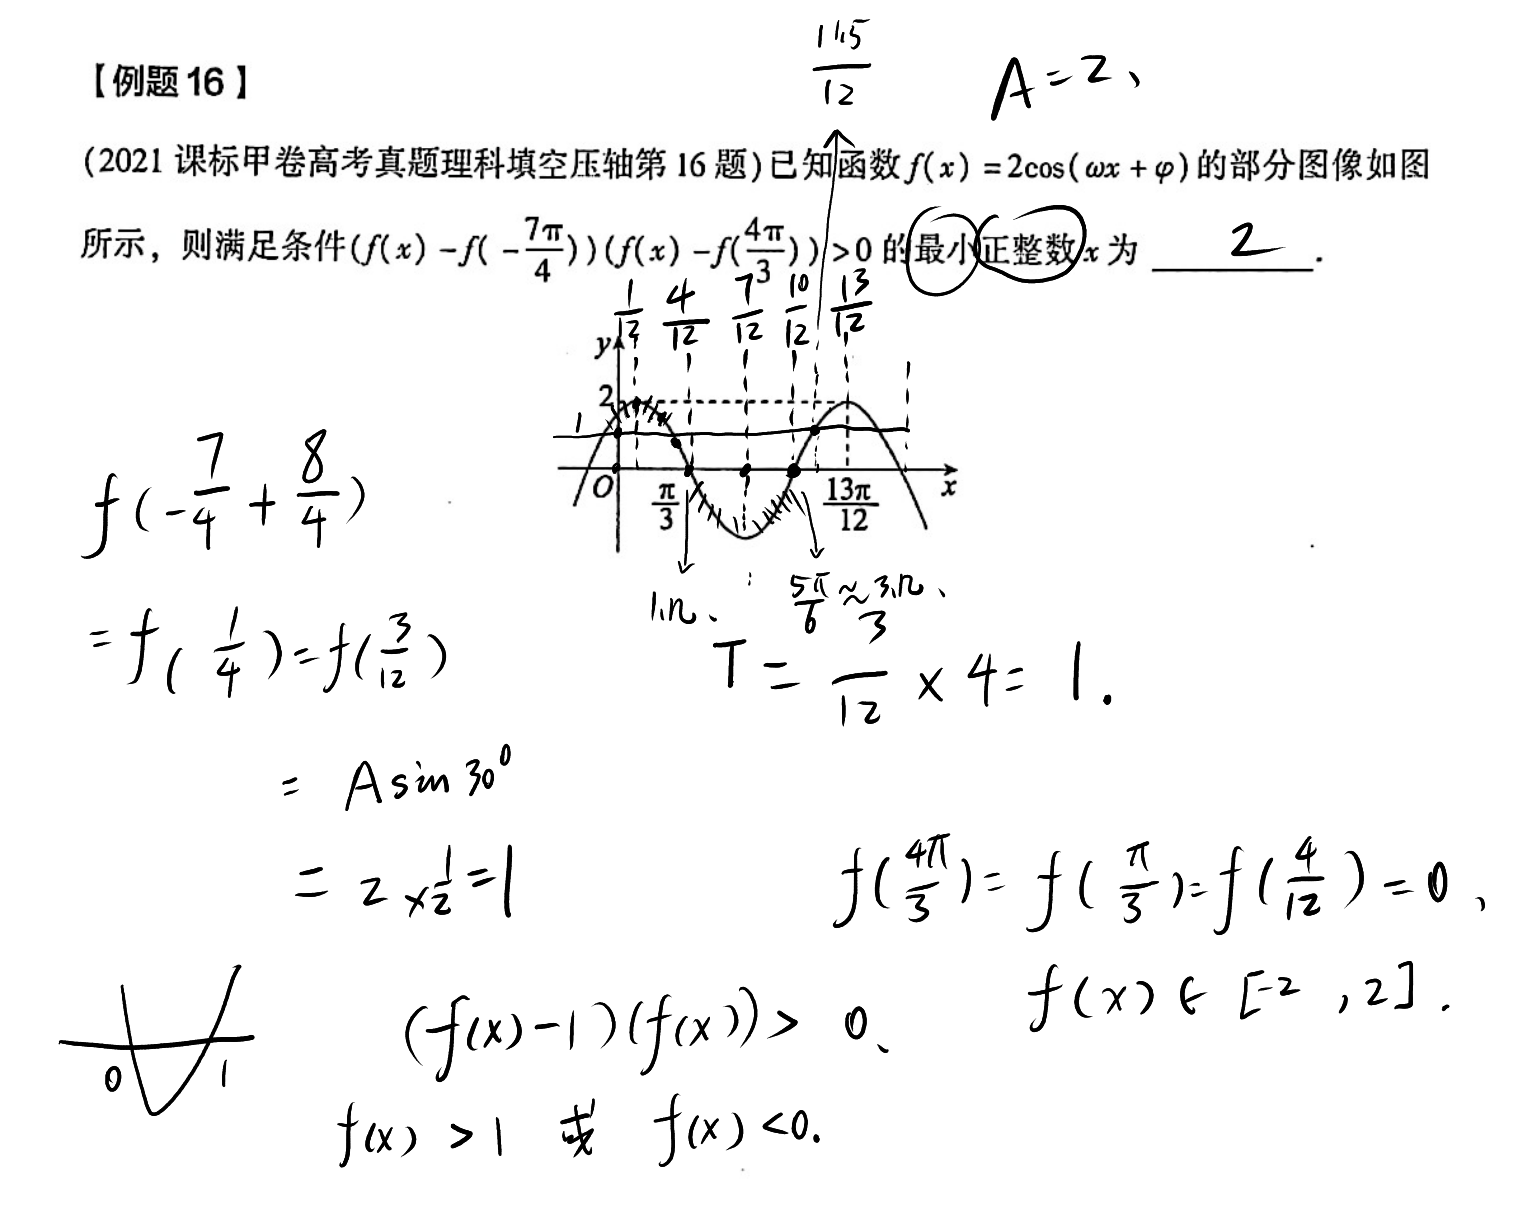 【例题16】
(2021 课标甲卷高考真题理科填空压轴第 16 题)已知函数 f(x) =2cos(ωx + φ)的部分图像如图
所示，则满足条件(f(x) -f( -7π/4))(f(x) -f(4π/3))>0 的最小正整数 x 为 2 .
A=2、
11.5/12
1/12 4/12 7/12 10/12 13/12
y
2
1
O π/3 13π/12 x
5π/6 ≈
f(-7/4 + 8/4)
= f(1/4) = f(3/12)
= A sin 30°
= 2 × 1/2 = 1
T = 3/12 × 4 = 1.
f(4π/3) = f(π/3) = f(4/12) = 0、
f(x) ∈ [-2 , 2].
0 1
(f(x)-1)(f(x)) > 0、
f(x) > 1 或 f(x) < 0.